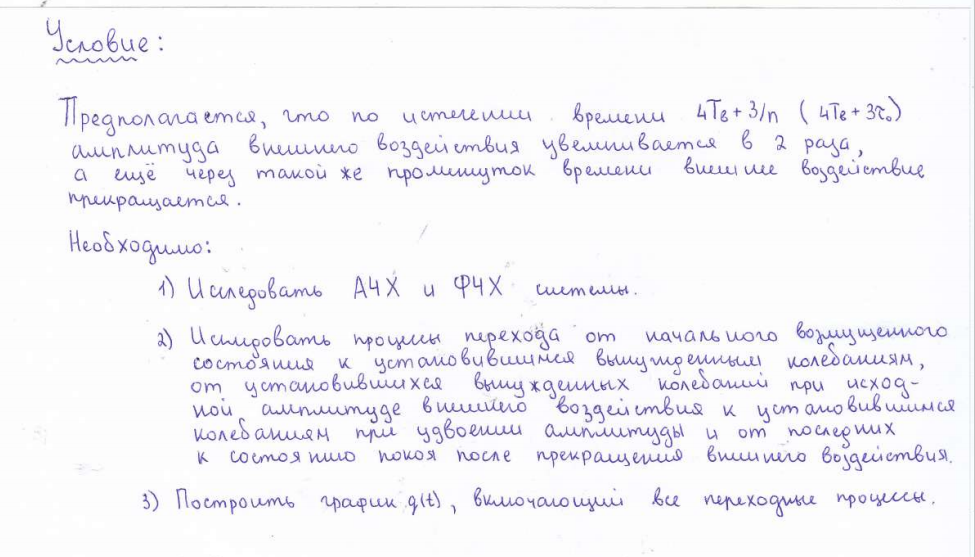 Условие:
Предполагается, что по истечении времени 4Tв + 3/n ( 4Tв + 3τ₀)
амплитуда внешнего воздействия увеличивается в 2 раза,
а ещё через такой же промежуток времени внешнее воздействие
прекращается.
Необходимо:
1) Исследовать АЧХ и ФЧХ системы.
2) Исследовать процессы перехода от начального возмущенного
состояния к установившимся вынужденным колебаниям,
от установившихся вынужденных колебаний при исход-
ной амплитуде внешнего воздействия к установившимся
колебаниям при удвоении амплитуды и от последних
к состоянию покоя после прекращения внешнего воздействия.
3) Построить график q(t), включающий все переходные процессы.